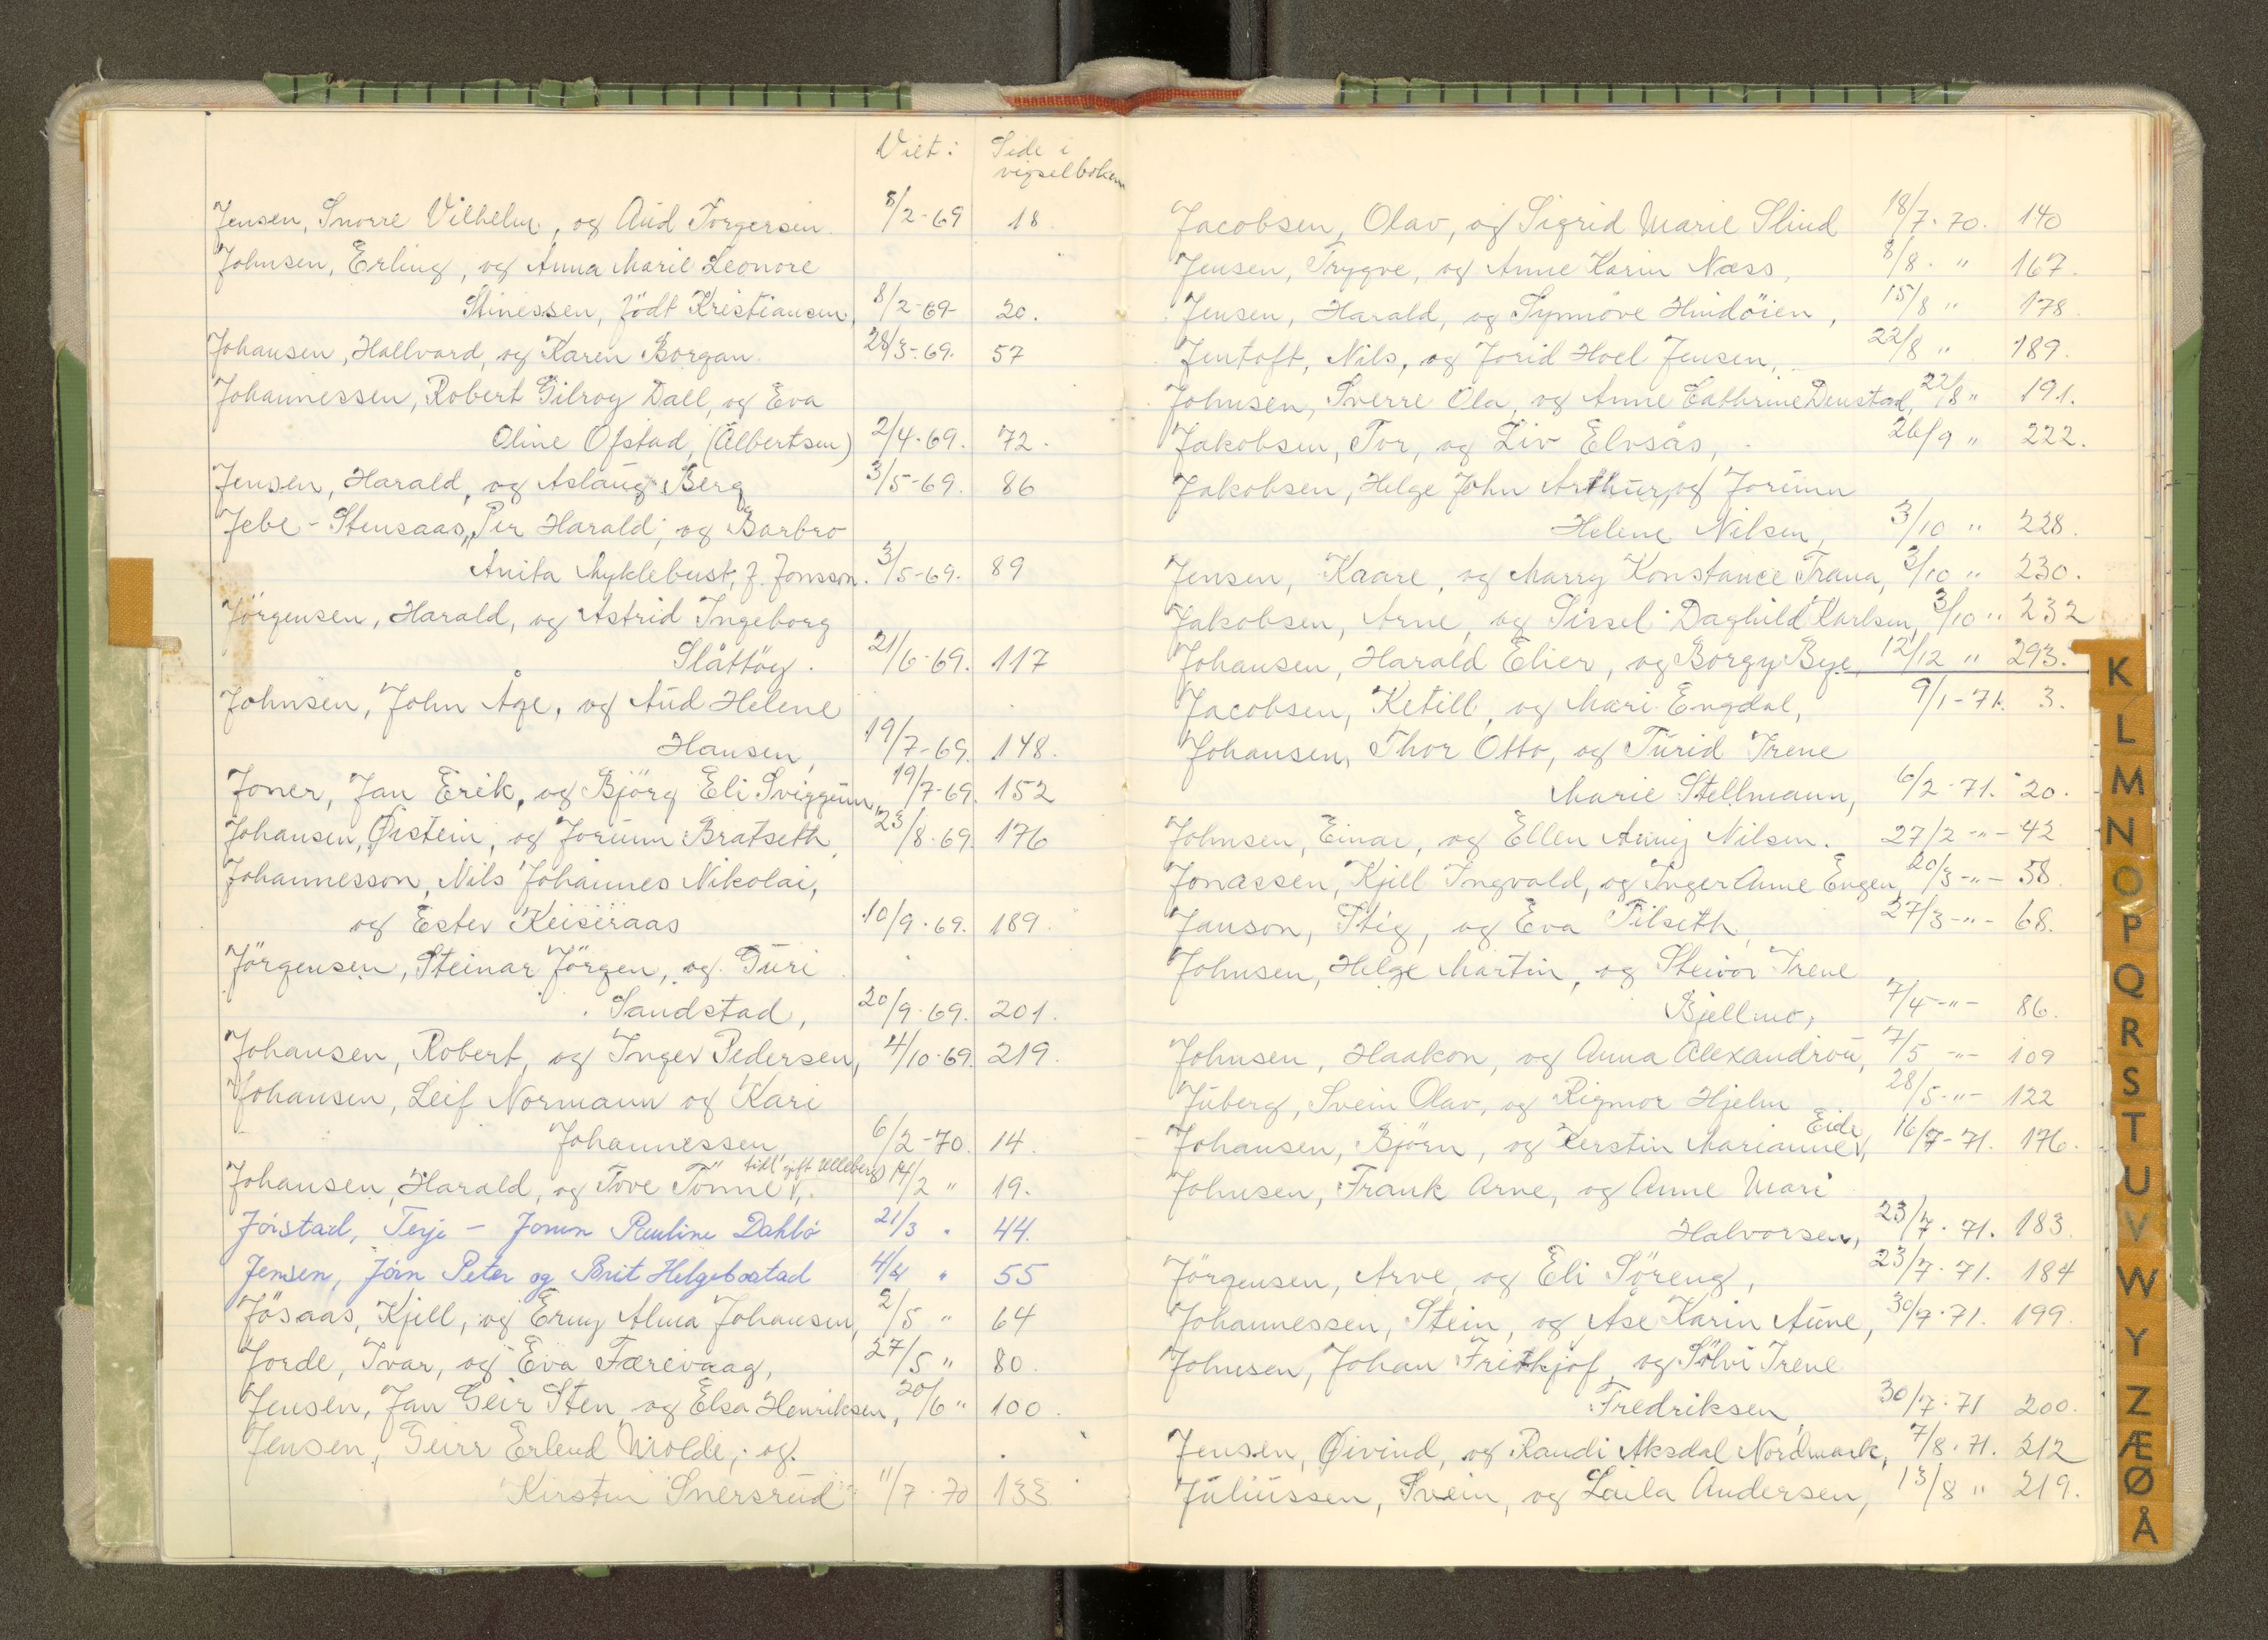 Viet: Side i
vigselboken
Jensen, Snorre Vilhelm, og Aud Torgersen. 8/2-69 18.
Johnsen, Erling, og Anna Marie Leonore
Stinessen, födt Kristiansen, 8/2-69 20.
Johansen, Hallvard, og Karen Borgan. 28/3-69. 57
Johannessen, Robert Gilroy Dall, og Eva
Oline Ofstad, (Albertsen) 2/4-69. 72.
Jensen, Harald, og Aslaug Berg 3/5-69. 86
Jebe-Stensaas, Per Harald, og Barbro
Anita Myklebust, f. Jonsson. 3/5-69. 89
Jörgensen, Harald, og Astrid Ingeborg
Slåttöy. 21/6-69. 117
Johnsen, John Åge, og Aud Helene
Hansen, 19/7-69. 148.
Joner, Jan Erik, og Björg Eli Sviggum, 19/7-69. 152
Johansen, Øistein, og Jorunn Bratseth, 23/8-69. 176
Johannesson, Nils Johannes Nikolai,
og Ester Keiseraas 10/9-69. 189.
Jörgensen, Steinar Jörgen, og Turi
Sandstad, 20/9-69. 201.
Johansen, Robert, og Inger Pedersen, 4/10-69. 219.
Johansen, Leif Normann og Kari
Johannessen 6/2-70. 14.
tidl. gift Ulleberg)
Johansen, Harald, og Tove Tönne, 14/2 " 19.
Jörstad, Terje - Jorun Pauline Dahlö 21/3 " 44.
Jensen, Jörn Peter og Brit Helgebostad 4/4 " 55
Jösaas, Kjell, og Erny Alma Johansen, 2/5 " 64
Jorde, Ivar, og Eva Færevaag, 27/5 " 80.
Jensen, Jan Geir Sten og Elsa Henriksen, 20/6 " 100.
Jensen, Geirr Erlend Molde, og
Kirsten Snersrud 11/7-70 133
Jacobsen, Olav, og Sigrid Marie Slind 18/7-70. 140
Jensen, Trygve, og Anne Karin Næss, 8/8. " 167.
Jensen, Harald, og Synnöve Hindöien, 15/8 " 178
Jentoft, Nils, og Jorid Hoel Jensen, 22/8 " 189.
Johnsen, Sverre Ola, og Anne Cathrine Denstad, 22/8 " 191.
Jakobsen, Tor, og Liv Elvsås, 26/9 " 222.
Jakobsen, Helge John Arthur, og Jorunn
Helene Nilsen, 3/10 " 228.
Jensen, Kaare, og Marry Konstance Trana, 3/10 " 230.
Jakobsen, Arne, og Sissel Daghild Karlsen, 3/10 " 232
Johansen, Harald Elier, og Borgy Bye, 12/12 " 293.
Jacobsen, Ketill, og Mari Engdal, 9/1-71. 3.
Johansen, Thor Otto, og Turid Irene
Marie Stellmann, 6/2-71. 20.
Johnsen, Einar, og Ellen Anny Nilsen. 27/2 -"- 42
Jonassen, Kjell Ingvald, og Inger Anne Engen, 20/3 -"- 58.
Janson, Stig, og Eva Tilseth, 27/3 -"- 68.
Johnsen, Helge Martin, og Steivor Irene
Bjellmo, 7/4 -"- 86.
Johnsen, Haakon, og Anna Alexandrou, 7/5 -"- 109
Juberg, Svein Olav, og Rigmor Hjelm 28/5 -"- 122
Eide
Johansen, Björn, og Kerstin Marianne, 16/7-71. 176.
Johnsen, Frank Arne, og Anne Mari
Halvorsen, 23/7-71. 183.
Jörgensen, Arve, og Eli Söreng, 23/7-71. 184
Johannessen, Stein, og Åse Karin Aune, 30/7-71. 199.
Johnsen, Johan Frithjof, og Sölvi Irene
Fredriksen, 30/7-71 200.
Jensen, Øivind, og Randi Aksdal Nordmark, 7/8-71. 212
Juliussen, Svein, og Laila Andersen, 13/8 " 219.
K
L
M
N
O
P
Q
R
S
T
U
V
W
Y
Z
Æ
Ø
Å